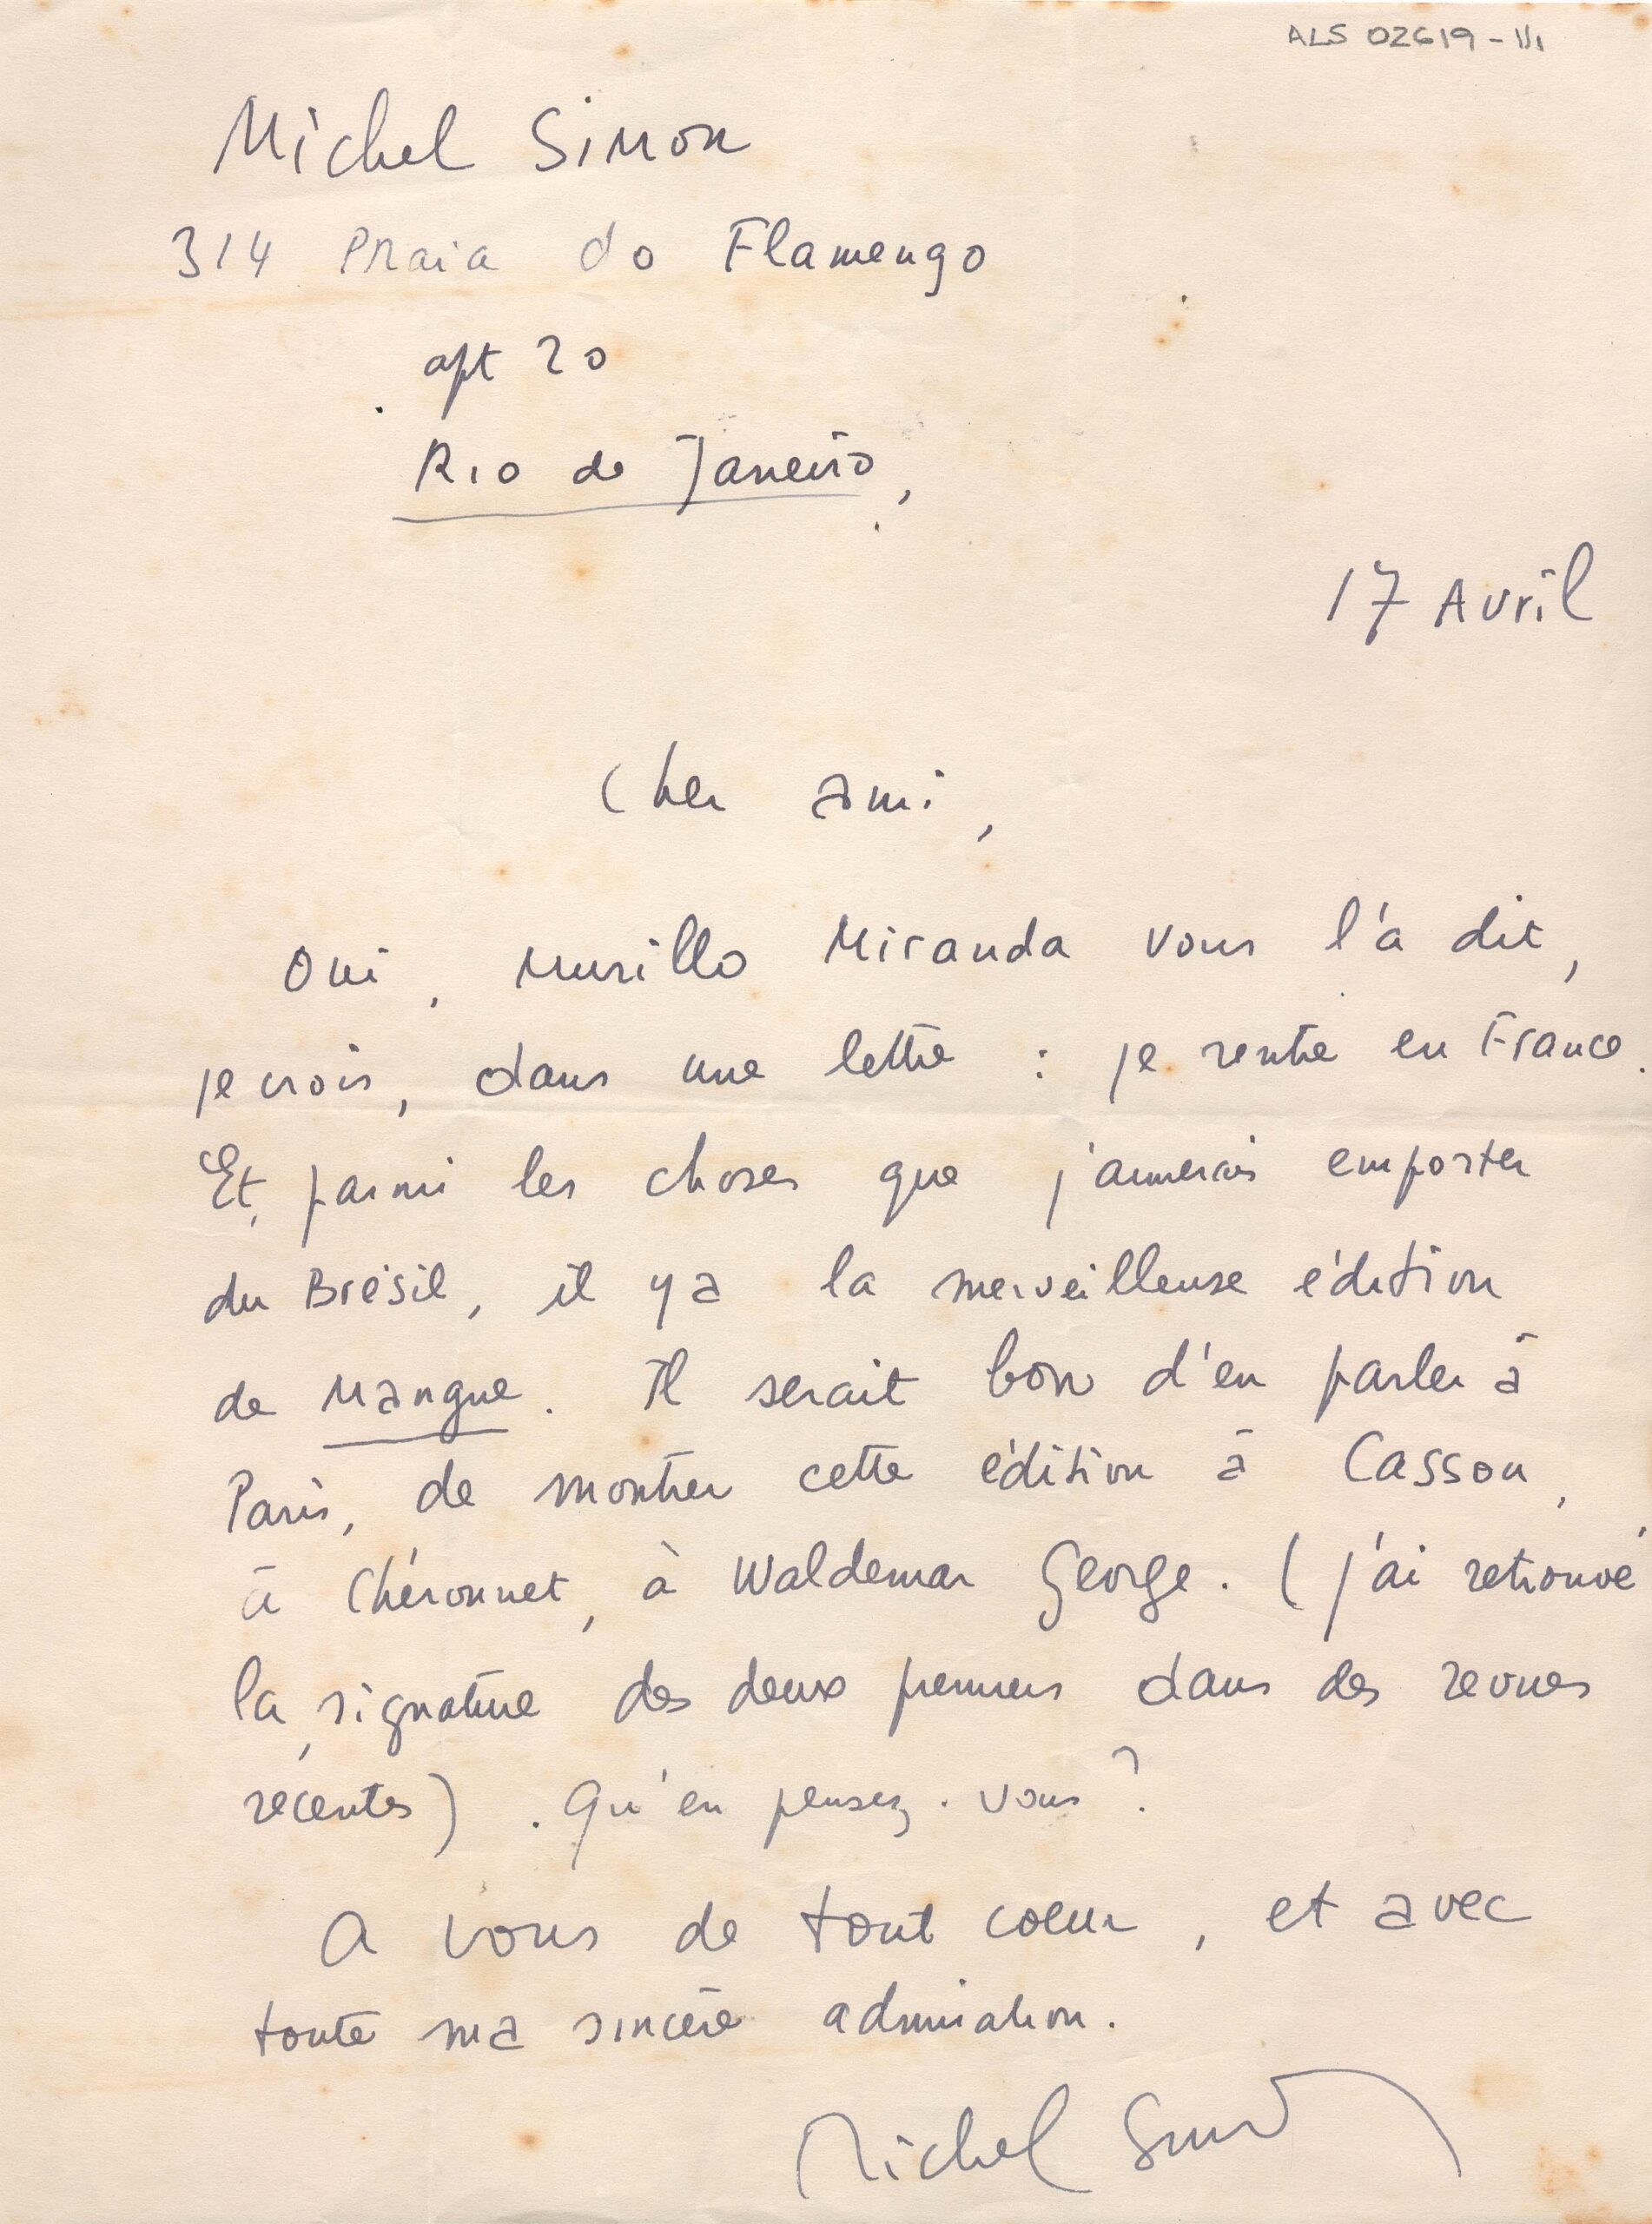 ALS 02619 - 1/1
Michel Simon
314 Praia do Flamengo
apt 20
Rio de Janeiro,
17 Avril
Cher ami,
Oui, Murillo Miranda vous l'a dit,
je crois, dans une lettre : je rentre en France.
Et, parmi les choses que j'aimerais emporter
du Brésil, il y a la merveilleuse édition
de Mangue. Il serait bon d'en parler à
Paris, de montrer cette édition à Cassou,
à Chéronnet, à Waldemar George. (j'ai retrouvé
la signature des deux premiers dans des revues
récentes). Qu'en pensez-vous ?
A vous de tout coeur, et avec
toute ma sincère admiration.
Michel Simon